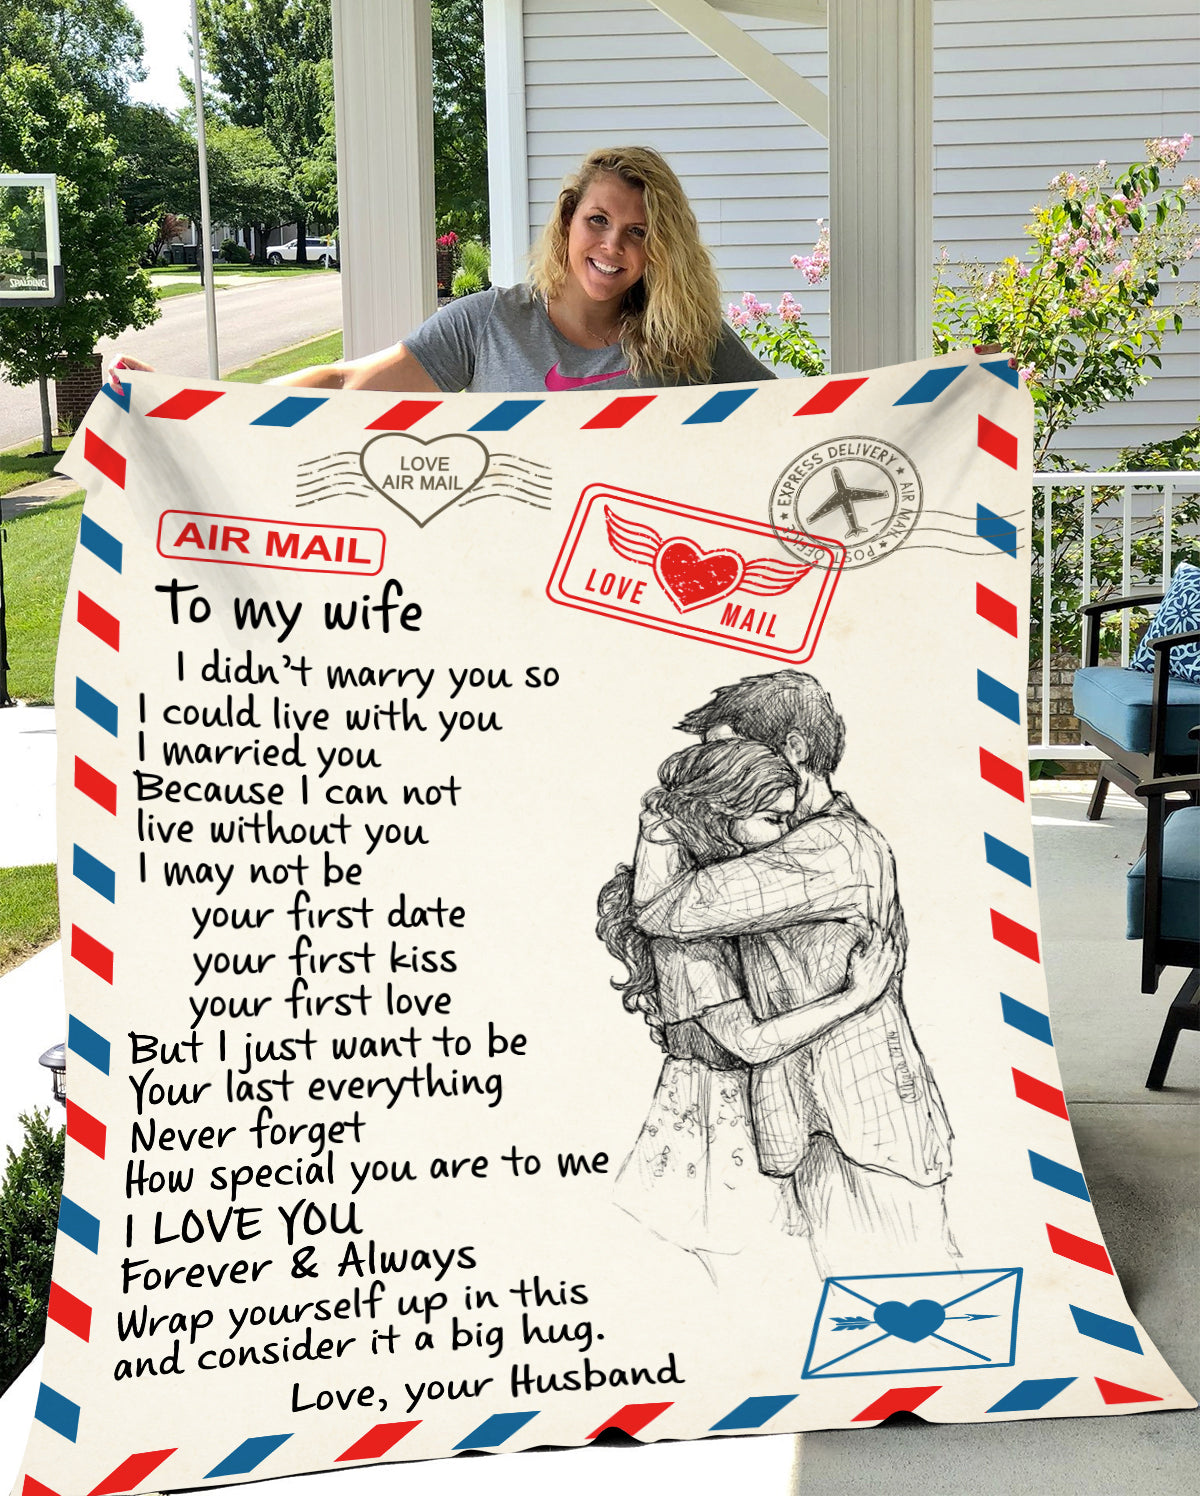 SPALDING
LOVE
AIR MAIL
EXPRESS DELIVERY ★ AIR MAIL ★ POST OFFICE ★
AIR MAIL
LOVE
MAIL
To my wife
I didn't marry you so
I could live with you
I married you
Because I can not
live without you
I may not be
your first date
your first kiss
your first love
But I just want to be
Your last everything
Never forget
How special you are to me
I LOVE YOU
Forever & Always
Wrap yourself up in this
and consider it a big hug.
Love, your Husband